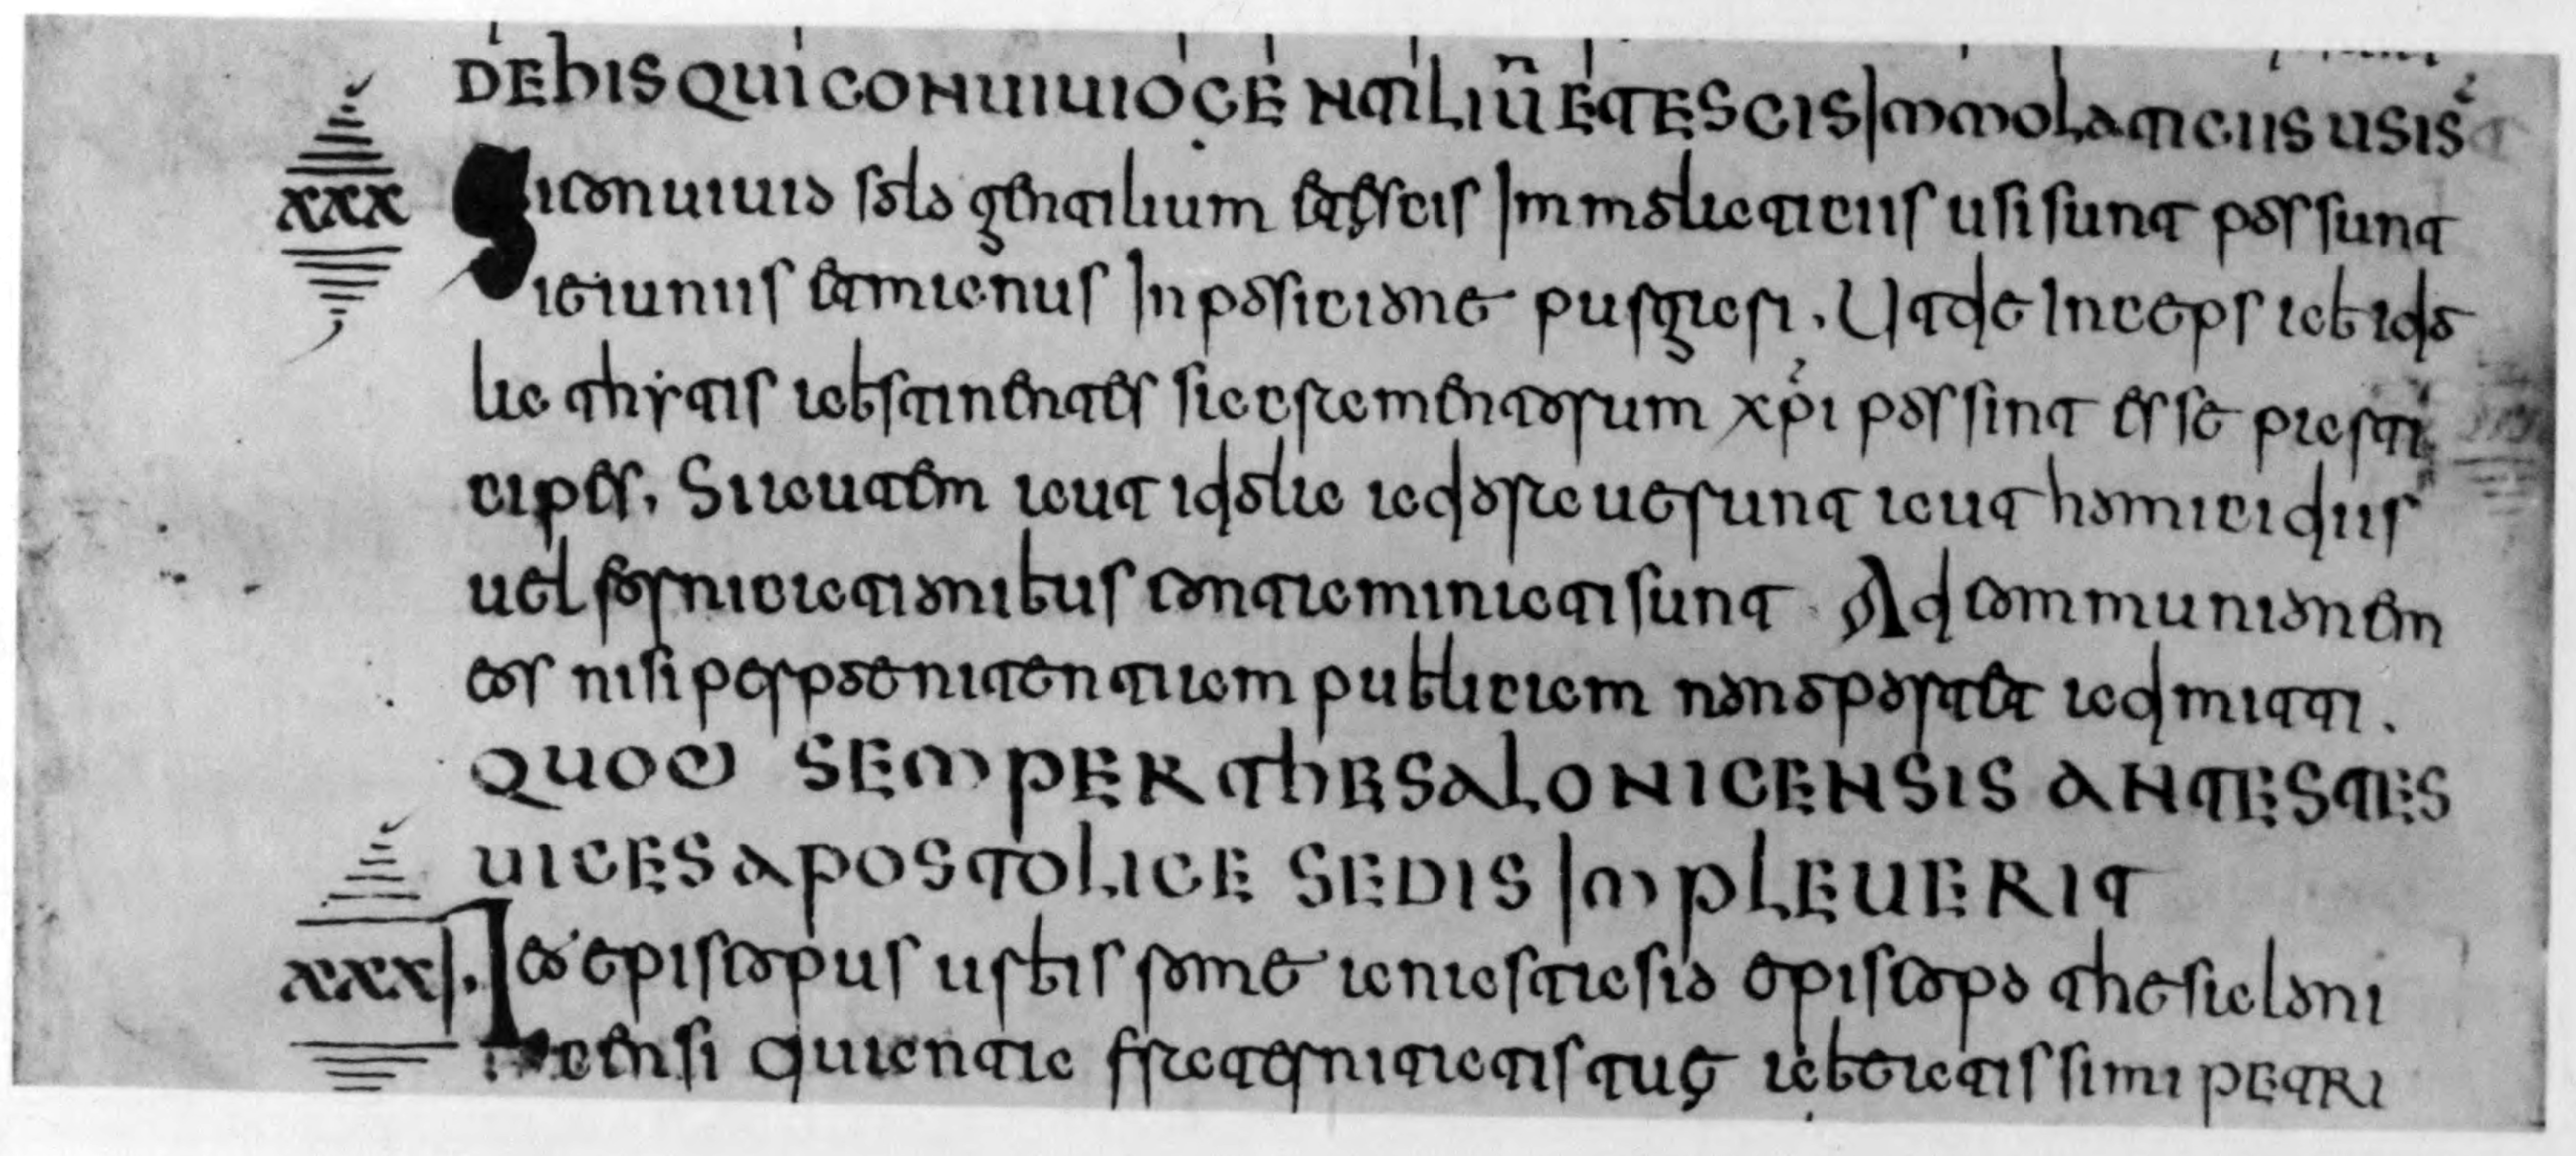 DE HIS QUI CONUIUIO GENTILIŪ ET ESCIS IMMOLATICIIS USIS
XXX Si conuiuio solo gentilium et escis Immolaticiis usi sunt possunt
ieiuniis et manus Inposicione purgari. Ut deInceps ab ido
la thytis abstinentes sacramentorum xp̄i possint esse parti
cipes. Si autem aut idola adorauerunt aut homicidiis
uel fornicationibus contaminati sunt Ad communionem
eos nisi per poenitentiam publicam non oportet admitti.
QUOD SEMPER THESALONICENSIS ANTESTES
UICES APOSTOLICE SEDIS IMPLEUERIT
XXXI. Leo episcopus urbis rome anastasio episcopo thesaloni
censi quanta fraternitatis tuę a beatissimi PETRI